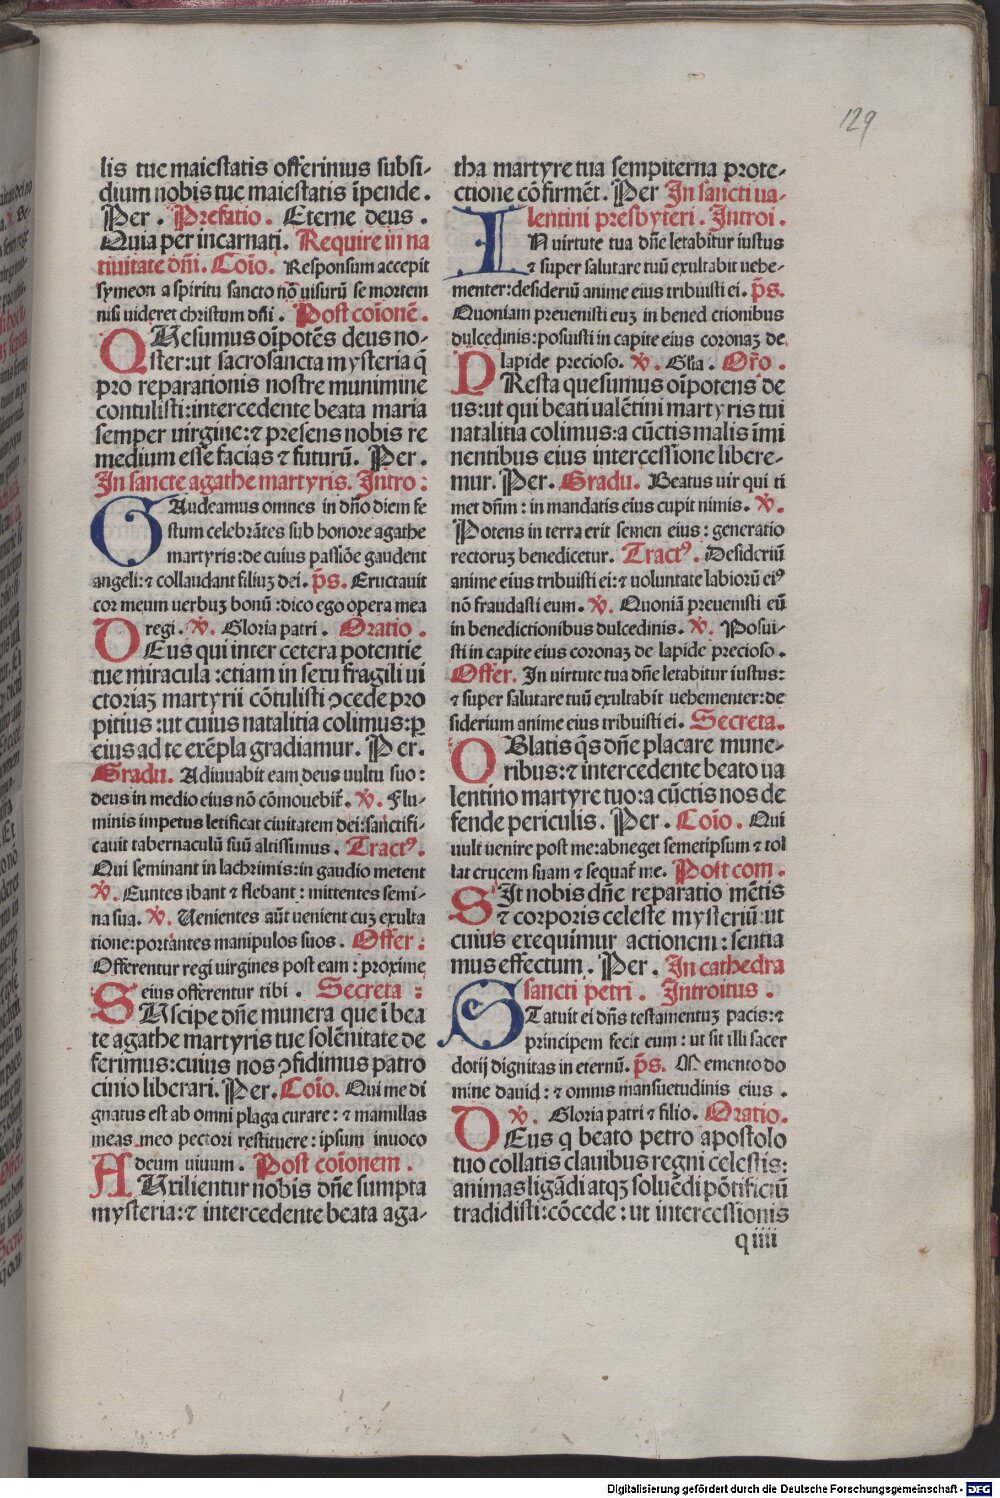 129
lis tue maiestatis offerimus subsi-
dium nobis tue maiestatis īpende.
Per. Prefatio. Eterne deus.
Quia per incarnati. Require in na
tiuitate dn̄i. Cōio. Responsum accepit
symeon a spiritu sancto nō uisurū se mortem
nisi uideret christum dn̄i. Post cōionē.
QUesumus oīpotēs deus no-
ster:ut sacrosancta mysteria q̄
pro reparationis nostre munimine
contulisti:intercedente beata maria
semper uirgine:⁊ presens nobis re
medium esse facias ⁊ futurū. Per.
In sancte agathe martyris. Intro:
GAudeamus omnes in dn̄o diem fe
stum celebrātes sub honore agathe
martyris:de cuius passiōe gaudent
angeli:⁊ collaudant filiuʒ dei. p̄s. Eructauit
cor meum uerbuʒ bonū:dico ego opera mea
regi. V̄. Gloria patri. Oratio.
DEus qui inter cetera potentie
tue miracula:etiam in sexu fragili ui
ctoriaʒ martyrii cōtulisti ꝯcede pro
pitius:ut cuius natalitia colimus:ꝑ
eius ad te exēpla gradiamur. Per.
Gradu. Adiuuabit eam deus uultu suo:
deus in medio eius nō cōmouebit̄. V̄. Flu-
minis impetus letificat ciuitatem dei:sanctifi-
cauit tabernaculū suū altissimus. Tractꝰ.
Qui seminant in lachrimis:in gaudio metent
V̄. Euntes ibant ⁊ flebant: mittentes semi-
na sua. V̄. Uenientes aūt uenient cuʒ exulta
tione:portantes manipulos suos. Offer:
Offerentur regi uirgines post eam:proxime
eius offerentur tibi. Secreta:
SUscipe dn̄e munera que ī bea
te agathe martyris tue solēnitate de
ferimus:cuius nos ꝯfidimus patro
cinio liberari. Per. Cōio. Qui me di
gnatus est ab omni plaga curare:⁊ mamillas
meas meo pectori restituere:ipsum inuoco
deum uiuum. Post cōionem.
AUxilientur nobis dn̄e sumpta
mysteria:⁊ intercedente beata aga-
tha martyre tua sempiterna prote-
ctione cōfirmēt. Per In sancti ua-
lentini presbyteri. Introi.
IN uirtute tua dn̄e letabitur iustus
⁊ super salutare tuū exultabit uehe-
menter:desideriū anime eius tribuisti ei. p̄s.
Quoniam preuenisti euʒ in bened ctionibus
dulcedinis:posuisti in capite eius coronaʒ de
lapide precioso. V̄. Gl̄ia. Or̄o.
PResta quesumus oīpotens de
us:ut qui beati ualētini martyris tui
natalitia colimus:a cūctis malis īmi
nentibus eius intercessione libere-
mur. Per. Gradu. Beatus uir qui ti
met dn̄m: in mandatis eius cupit nimis. V̄.
Potens in terra erit semen eius: generatio
rectoruʒ benedicetur. Tractꝰ. Desideriū
anime eius tribuisti ei:⁊ uoluntate labiorū eiꝰ
nō fraudasti eum. V̄. Quoniā preuenisti eū
in benedictionibus dulcedinis. V̄. Posui-
sti in capite eius coronaʒ de lapide precioso.
Offer. In uirtute tua dn̄e letabitur iustus:
⁊ super salutare tuū exultabit uehementer:de
siderium anime eius tribuisti ei. Secreta.
OBlatis q̄s dn̄e placare mune-
ribus:⁊ intercedente beato ua
lentino martyre tuo:a cūctis nos de
fende periculis. Per. Cōio. Qui
uult uenire post me:abneget semetipsum ⁊ tol
lat crucem suam ⁊ sequat̄ me. Post com.
SIt nobis dn̄e reparatio mētis
⁊ corporis celeste mysteriū:ut
cuius exequimur actionem:sentia
mus effectum. Per. In cathedra
sancti petri. Introitus.
STatuit ei dn̄s testamentuʒ pacis:⁊
principem fecit eum:ut sit illi sacer
dotij dignitas in eternū. p̄s. Memento do
mine dauid:⁊ omnis mansuetudinis eius.
V̄. Gloria patri ⁊ filio. Oratio.
DEus q beato petro apostolo
tuo collatis clauibus regni celestis:
animas ligādi atqʒ soluēdi pōtificiū
tradidisti:cōcede:ut intercessionis
q iiii
Digitalisierung gefördert durch die Deutsche Forschungsgemeinschaft - DFG